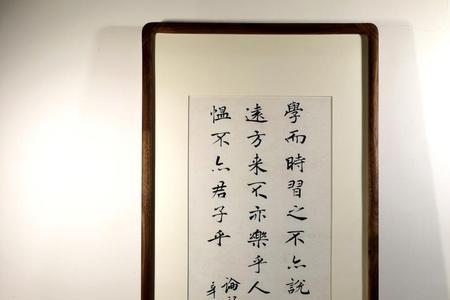 學而時習之不亦說
遠方来不亦樂乎人
愠不亦君子乎
論